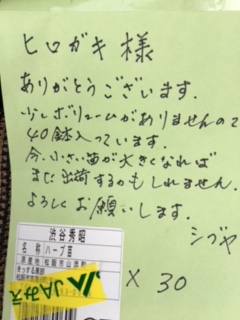 ヒロガキ様
ありがとうございます.
少しボリュームがありませんので
40鉢入っています.
今、小さい苗が大きくなれば
また出荷するかもしれません.
よろしくお願いします.
シブヤ
渋谷秀昭
名称 ハーブ苗
原産地 松阪市山添町
JAみえ
× 30